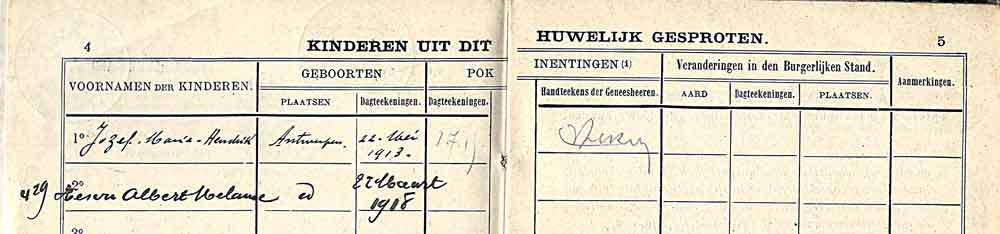 4 KINDEREN UIT DIT HUWELIJK GESPROTEN. 5
VOORNAMEN DER KINDEREN. GEBOORTEN POK INENTINGEN (1) Veranderingen in den Burgerlijken Stand. Aanmerkingen.
PLAATSEN Dagteekeningen. Dagteekeningen. Handteekens der Geneesheeren. AARD Dagteekeningen. PLAATSEN.
1° Jozef-Maria-Hendrik Antwerpen. 22-Mei
1913.
2° Albert id 27 Maart
1918
3°